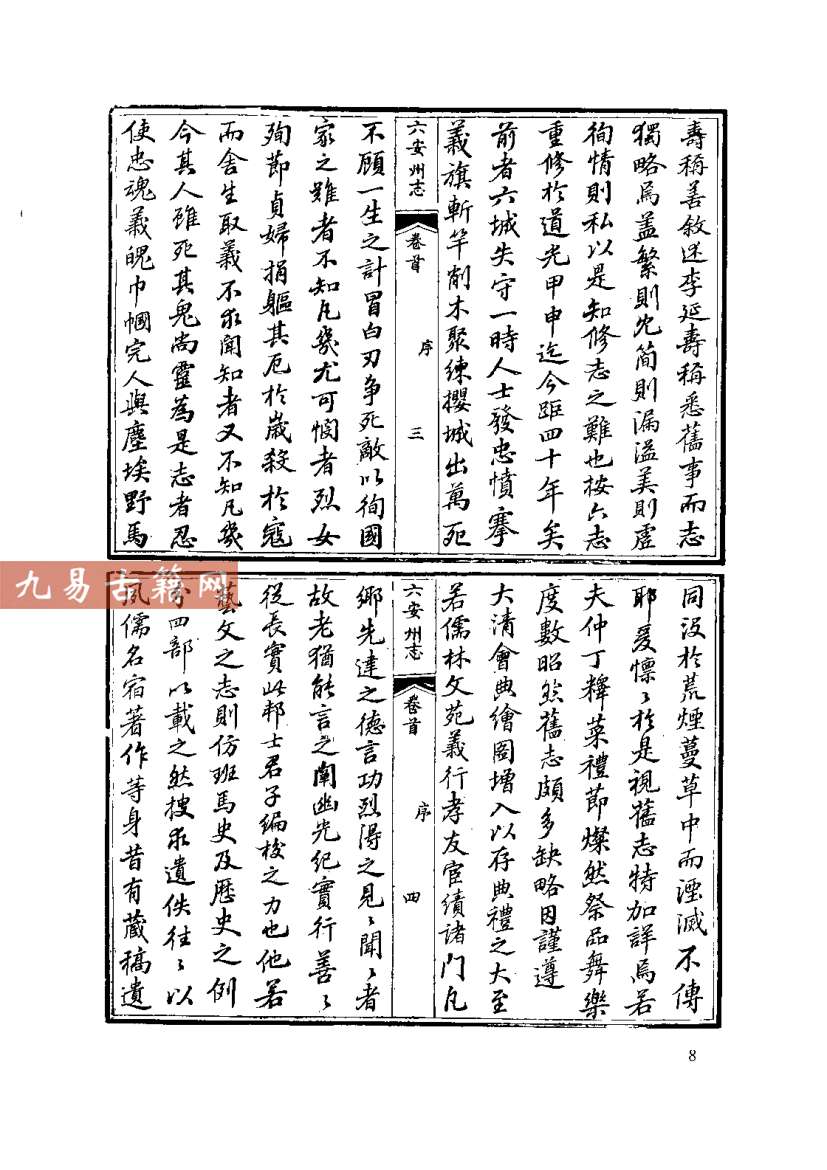 壽稱善敘述李延壽稱悉舊事而志
獨略焉蓋繁則冗簡則漏溢美則虛
徇情則私以是知修志之難也按六志
重修於道光甲申迄今距四十年矣
前者六城失守一時人士發忠憤搴
義旗斬竿削木聚練攖城出萬死
六安州志 卷首 序 三
不顧一生之計冒白刃爭死敵以徇國
家之難者不知凡幾尤可憫者烈女
殉節貞婦捐軀其厄於歲殺於寇
而舍生取義不求聞知者又不知凡幾
今其人雖死其鬼尚靈為是志者忍
使忠魂義魄巾幗完人與塵埃野馬
同沒於荒煙蔓草中而湮滅不傳
耶爰懍〻於是視舊志特加詳焉若
夫仲丁釋菜禮節燦然祭品舞樂
度數昭然舊志頗多缺略因謹遵
大清會典繪圖增入以存典禮之大至
若儒林文苑義行孝友宦績諸門凡
六安州志 卷首 序 四
鄉先達之德言功烈得之見〻聞〻者
故老猶能言之闡幽光紀實行善〻
從長實此邦士君子編校之力也他若
藝文之志則仿班馬史及歷史之例
四部以載之然搜求遺佚往〻以
夙儒名宿著作等身昔有藏稿遺
九易古籍网
8